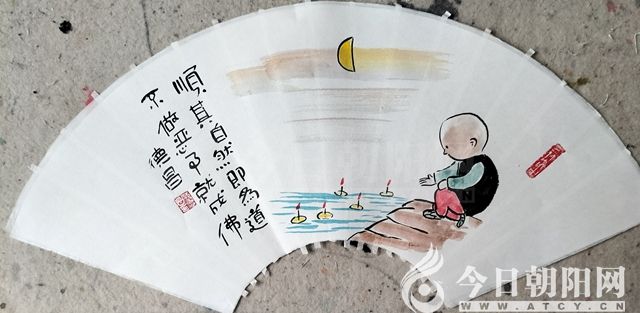 順其自然即為道
不做恶了就成佛
德昌
今日朝阳网
WWW.ATCY.CN